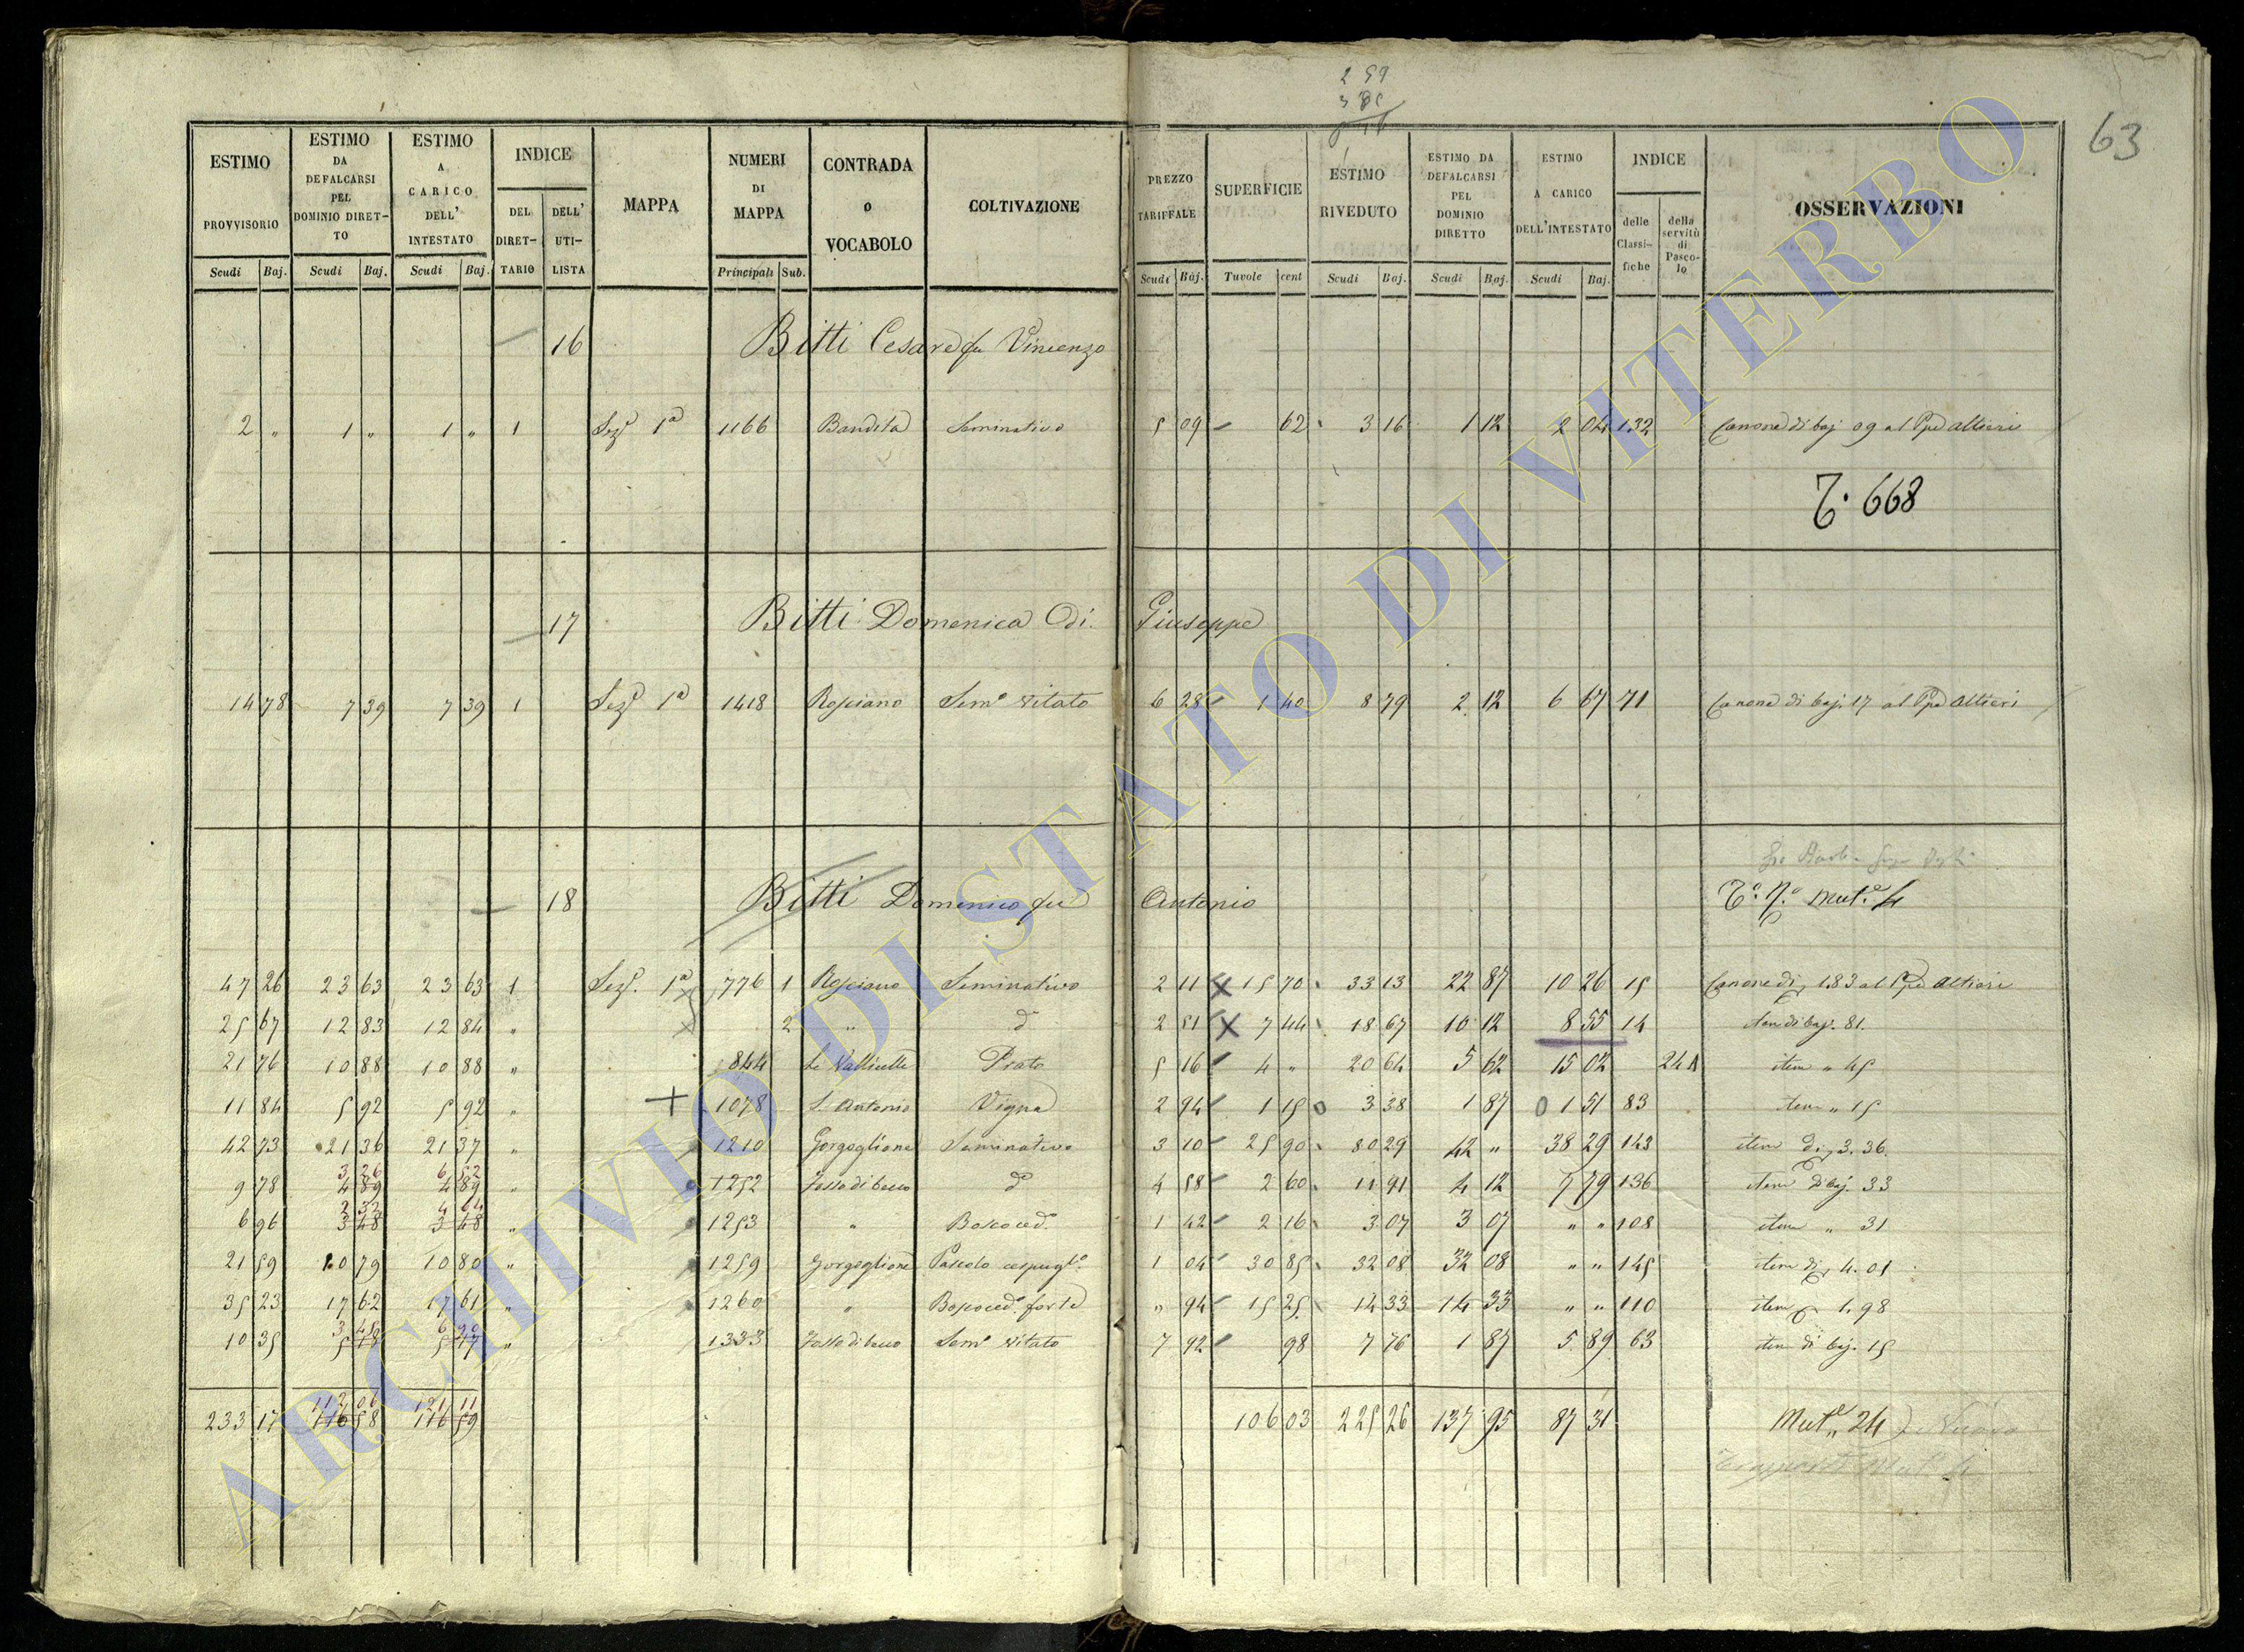 63
ESTIMO PROVVISORIO Scudi Baj.
ESTIMO DA DEFALCARSI PEL DOMINIO DIRETTO Scudi Baj.
ESTIMO A CARICO DELL' INTESTATO Scudi Baj.
INDICE DEL DIRETTARIO DELL' UTILISTA
MAPPA
NUMERI DI MAPPA Principali Sub.
CONTRADA O VOCABOLO
COLTIVAZIONE
PREZZO TARIFFALE Scudi Baj.
SUPERFICIE Tavole cent
ESTIMO RIVEDUTO Scudi Baj.
ESTIMO DA DEFALCARSI PEL DOMINIO DIRETTO Scudi Baj.
ESTIMO A CARICO DELL'INTESTATO Scudi Baj.
INDICE delle Classifiche della servitù di Pascolo
OSSERVAZIONI
16 Bitti Cesare fu Vincenzo
2 " 1 " 1 " 1 Sez. 1a 1166 Bandita Seminativo 5 09 62 3 16 1 12 2 04 132 Canone di baj 09 al Ppe Altieri
T. 668
17 Bitti Domenica di Giuseppe
14 78 7 39 7 39 1 Sez. 1a 1418 Rosciano Sem.o vitato 6 28 1 40 8 79 2 12 6 67 71 Canone di baj. 17 al Ppe Altieri
18 Bitti Domenico fu Antonio
47 26 23 63 23 63 1 Sez. 1a 776 1 Rosciano Seminativo 2 11 X 15 70 33 13 22 87 10 26 15 Canone di 1.83 al Ppe Altieri
25 67 12 83 12 84 " 2 " d.o 2 51 X 7 44 18 67 10 12 8 55 14 item di baj. 81.
21 76 10 88 10 88 " 844 Le Vallicelle Prato 5 16 4 " 20 64 5 62 15 02 24 item " 45
11 84 5 92 5 92 " + 1078 S. Antonio Vigna 2 94 1 15 3 38 1 87 1 51 83 item " 15
42 73 21 36 21 37 " 1210 Gorgoglione Seminativo 3 10 25 90 80 29 42 " 38 29 143 item di 3.36.
3 26 6 52
9 78 4 89 4 89 " 1252 Fosso di bucco d.o 4 58 2 60 11 91 4 12 7 79 136 item di baj. 33
2 32 4 64
6 96 3 48 3 48 " 1253 " Bosco ced. 1 42 2 16 3 07 3 07 " " 108 item " 31
21 59 10 79 10 80 " 1259 Gorgoglione Pascolo cespugl.o 1 04 30 85 32 08 32 08 " " 145 item di 4.01
35 23 17 62 17 61 " 1260 " Bosco ced. forte " 94 15 25 14 33 14 33 " " 110 item 1.98
3 45 6 90
10 35 5 18 5 17 " 1333 Fosso di bucco Sem.o vitato 7 92 98 7 76 1 87 5 89 63 item di baj. 15
112 06 121 11
233 17 116 58 116 59 106 03 225 26 137 95 87 31 Mut.e 24
ARCHIVIO DI STATO DI VITERBO